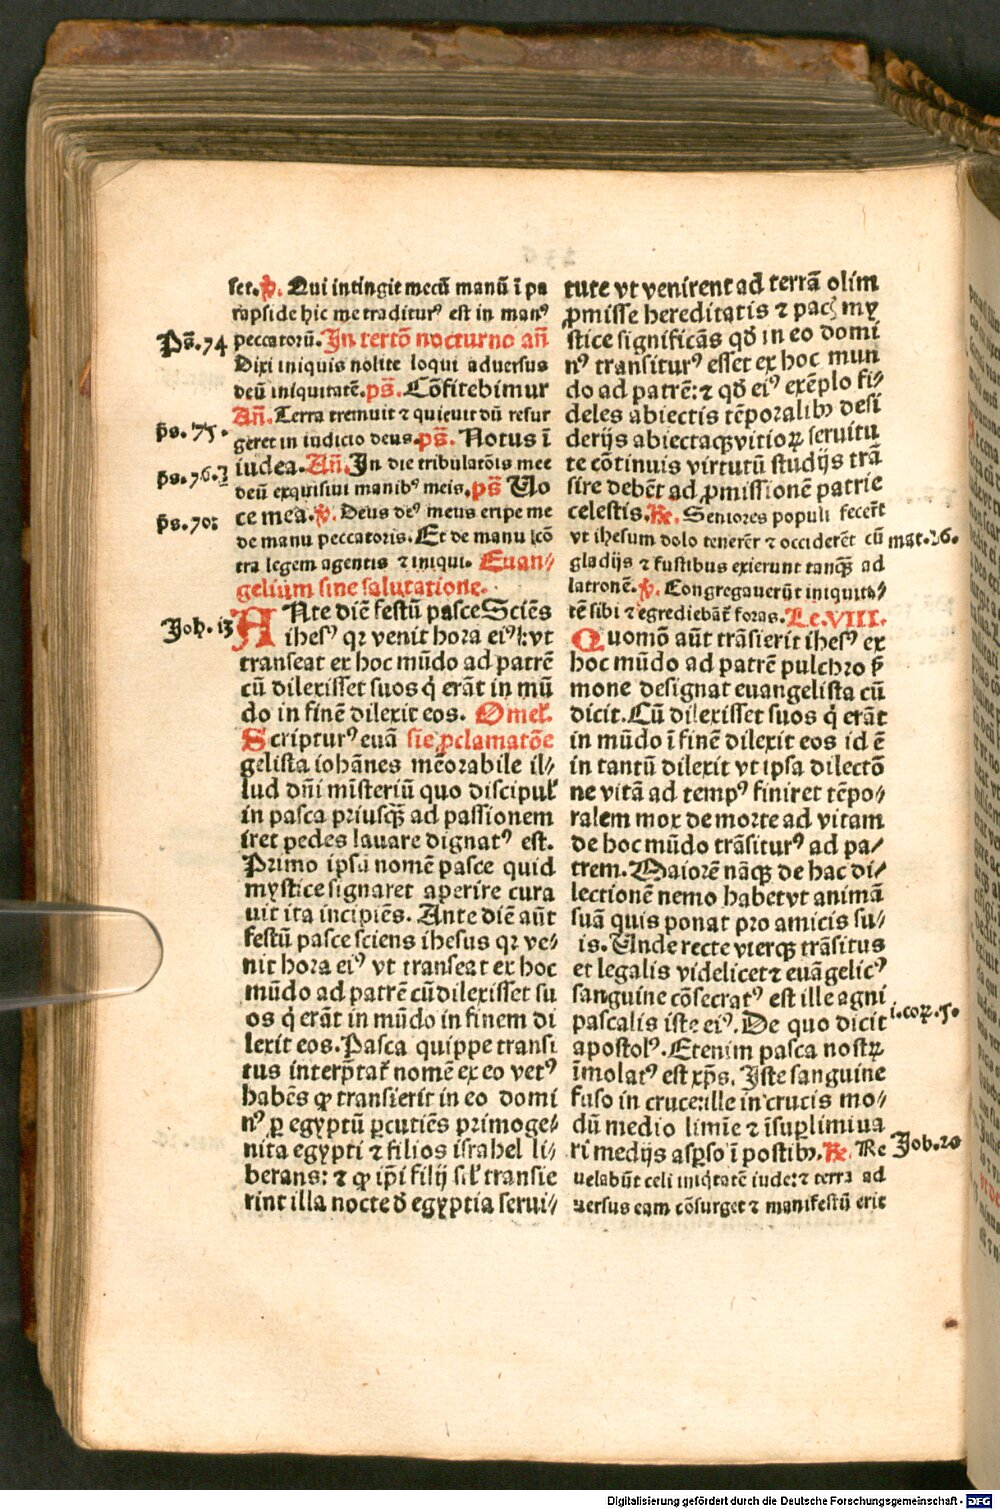 set. ꝟ. Qui intingit mecū manū ī pa
rapside hic me traditurꝰ est in manꝰ
peccatorū. In tertō nocturno añ
Dixi iniquis nolite loqui aduersus
deū iniquitatē. pš. Cōfitebimur
Añ. Terra tremuit ⁊ quieuit dū resur
geret in iudicio deus. pš. Notus ī
iudea. Añ. In die tribulatōis mee
deū exquisiui manibꝰ meis. pš Uo
ce mea. ꝟ. Deus deꝰ meus eripe me
de manu peccatoris. Et de manu ꝯtō
tra legem agentis ⁊ iniqui. Euan⸗
gelium sine salutatione.
ANte diē festū pasce Sciēs
ihesꝰ qꝛ venit hora eiꝰ: vt
transeat ex hoc mūdo ad patrē
cū dilexisset suos q̇ erāt in mū
do in finē dilexit eos. Omeł.
Scripturꝰ euā sie ꝓclamatōe
gelista iohānes mēorabile il⸗
lud dñi mīsteriū quo discipuł
in pasca priusꝙ̄ ad passionem
iret pedes lauare dignatꝰ est.
Primo ipsū nomē pasce quid
mystice signaret aperire cura
uit ita incipiēs. Ante diē aūt
festū pasce sciens ihesus qꝛ ve⸗
nit hora eiꝰ vt transeat ex hoc
mūdo ad patrē cū dilexisset su
os q̇ erāt in mūdo in finem di
lexit eos. Pasca quippe transi
tus interp̄tat̄ nomē ex eo vetꝰ
habēs ꝙ transierit in eo domi
nꝰ ꝑ egyptū ꝑcutiēs primoge⸗
nita egypti ⁊ filios israhel li⸗
berans: ⁊ ꝙ ip̄i filij isrł transie
rint illa nocte đ egyptia serui⸗
tute vt venirent ad terrā olim
ꝓmisse hereditatis ⁊ pacꝭ my
stice significās qđ in eo domi
nꝰ transiturꝰ esset ex hoc mun
do ad patrē: ⁊ qđ eiꝰ exēplo fi⸗
deles abiectis tēporalibꝫ desi
derijs abiectaꝙ vitioꝝ seruitu
te cōtinuis virtutū studijs trā
sire debēt ad ꝓmissionē patrie
celestis. R̄. Seniores populi fecert̄
vt ihesum dolo tenerēt ⁊ occiderēt cū
gladijs ⁊ fustibus exierunt tanꝙ̄ ad
latronē. ꝟ. Congregauerūt iniquita⸗
tē sibi ⁊ egrediebāt̄ foras. Le. VIII.
Quomō aūt trāsierit ihesꝰ ex
hoc mūdo ad patrē pulchro ẜ
mone designat euangelista cū
dicit. Cū dilexisset suos q̇ erāt
in mūdo ī finē dilexit eos id ē
in tantū dilexit vt ipsa dilectō
ne vitā ad tempꝰ finiret tēpo⸗
ralem mox de morte ad vitam
de hoc mūdo trāsiturꝰ ad pa⸗
trem. Maiorē nāꝙ de hac di⸗
lectionē nemo habet vt animā
suā quis ponat pro amicis su⸗
is. Unde recte vterꝙ trāsitus
et legalis videlicet ⁊ euāgelicꝰ
sanguine cōsecratꝰ est ille agni
pascalis iste eiꝰ. De quo dicit
apostolꝰ. Etenim pasca nostꝝ
īmolatꝰ est xp̄s. Iste sanguine
fuso in cruce: ille in crucis mo⸗
dū medio limīe ⁊ īsuꝑlimiua
ri medijs asꝑso ī postibꝫ. R̄. Re
uelabūt celi iniq̇tatē iude: ⁊ terra ad
uersus eam cōsurget ⁊ manifestū erit
Pš. 74
ps. 75.
ps. 76. ⁊
ps. 70:
Joh. 13
mat. 26.
i. coꝝ. 5.
Job. 20
Digitalisierung gefördert durch die Deutsche Forschungsgemeinschaft - DFG